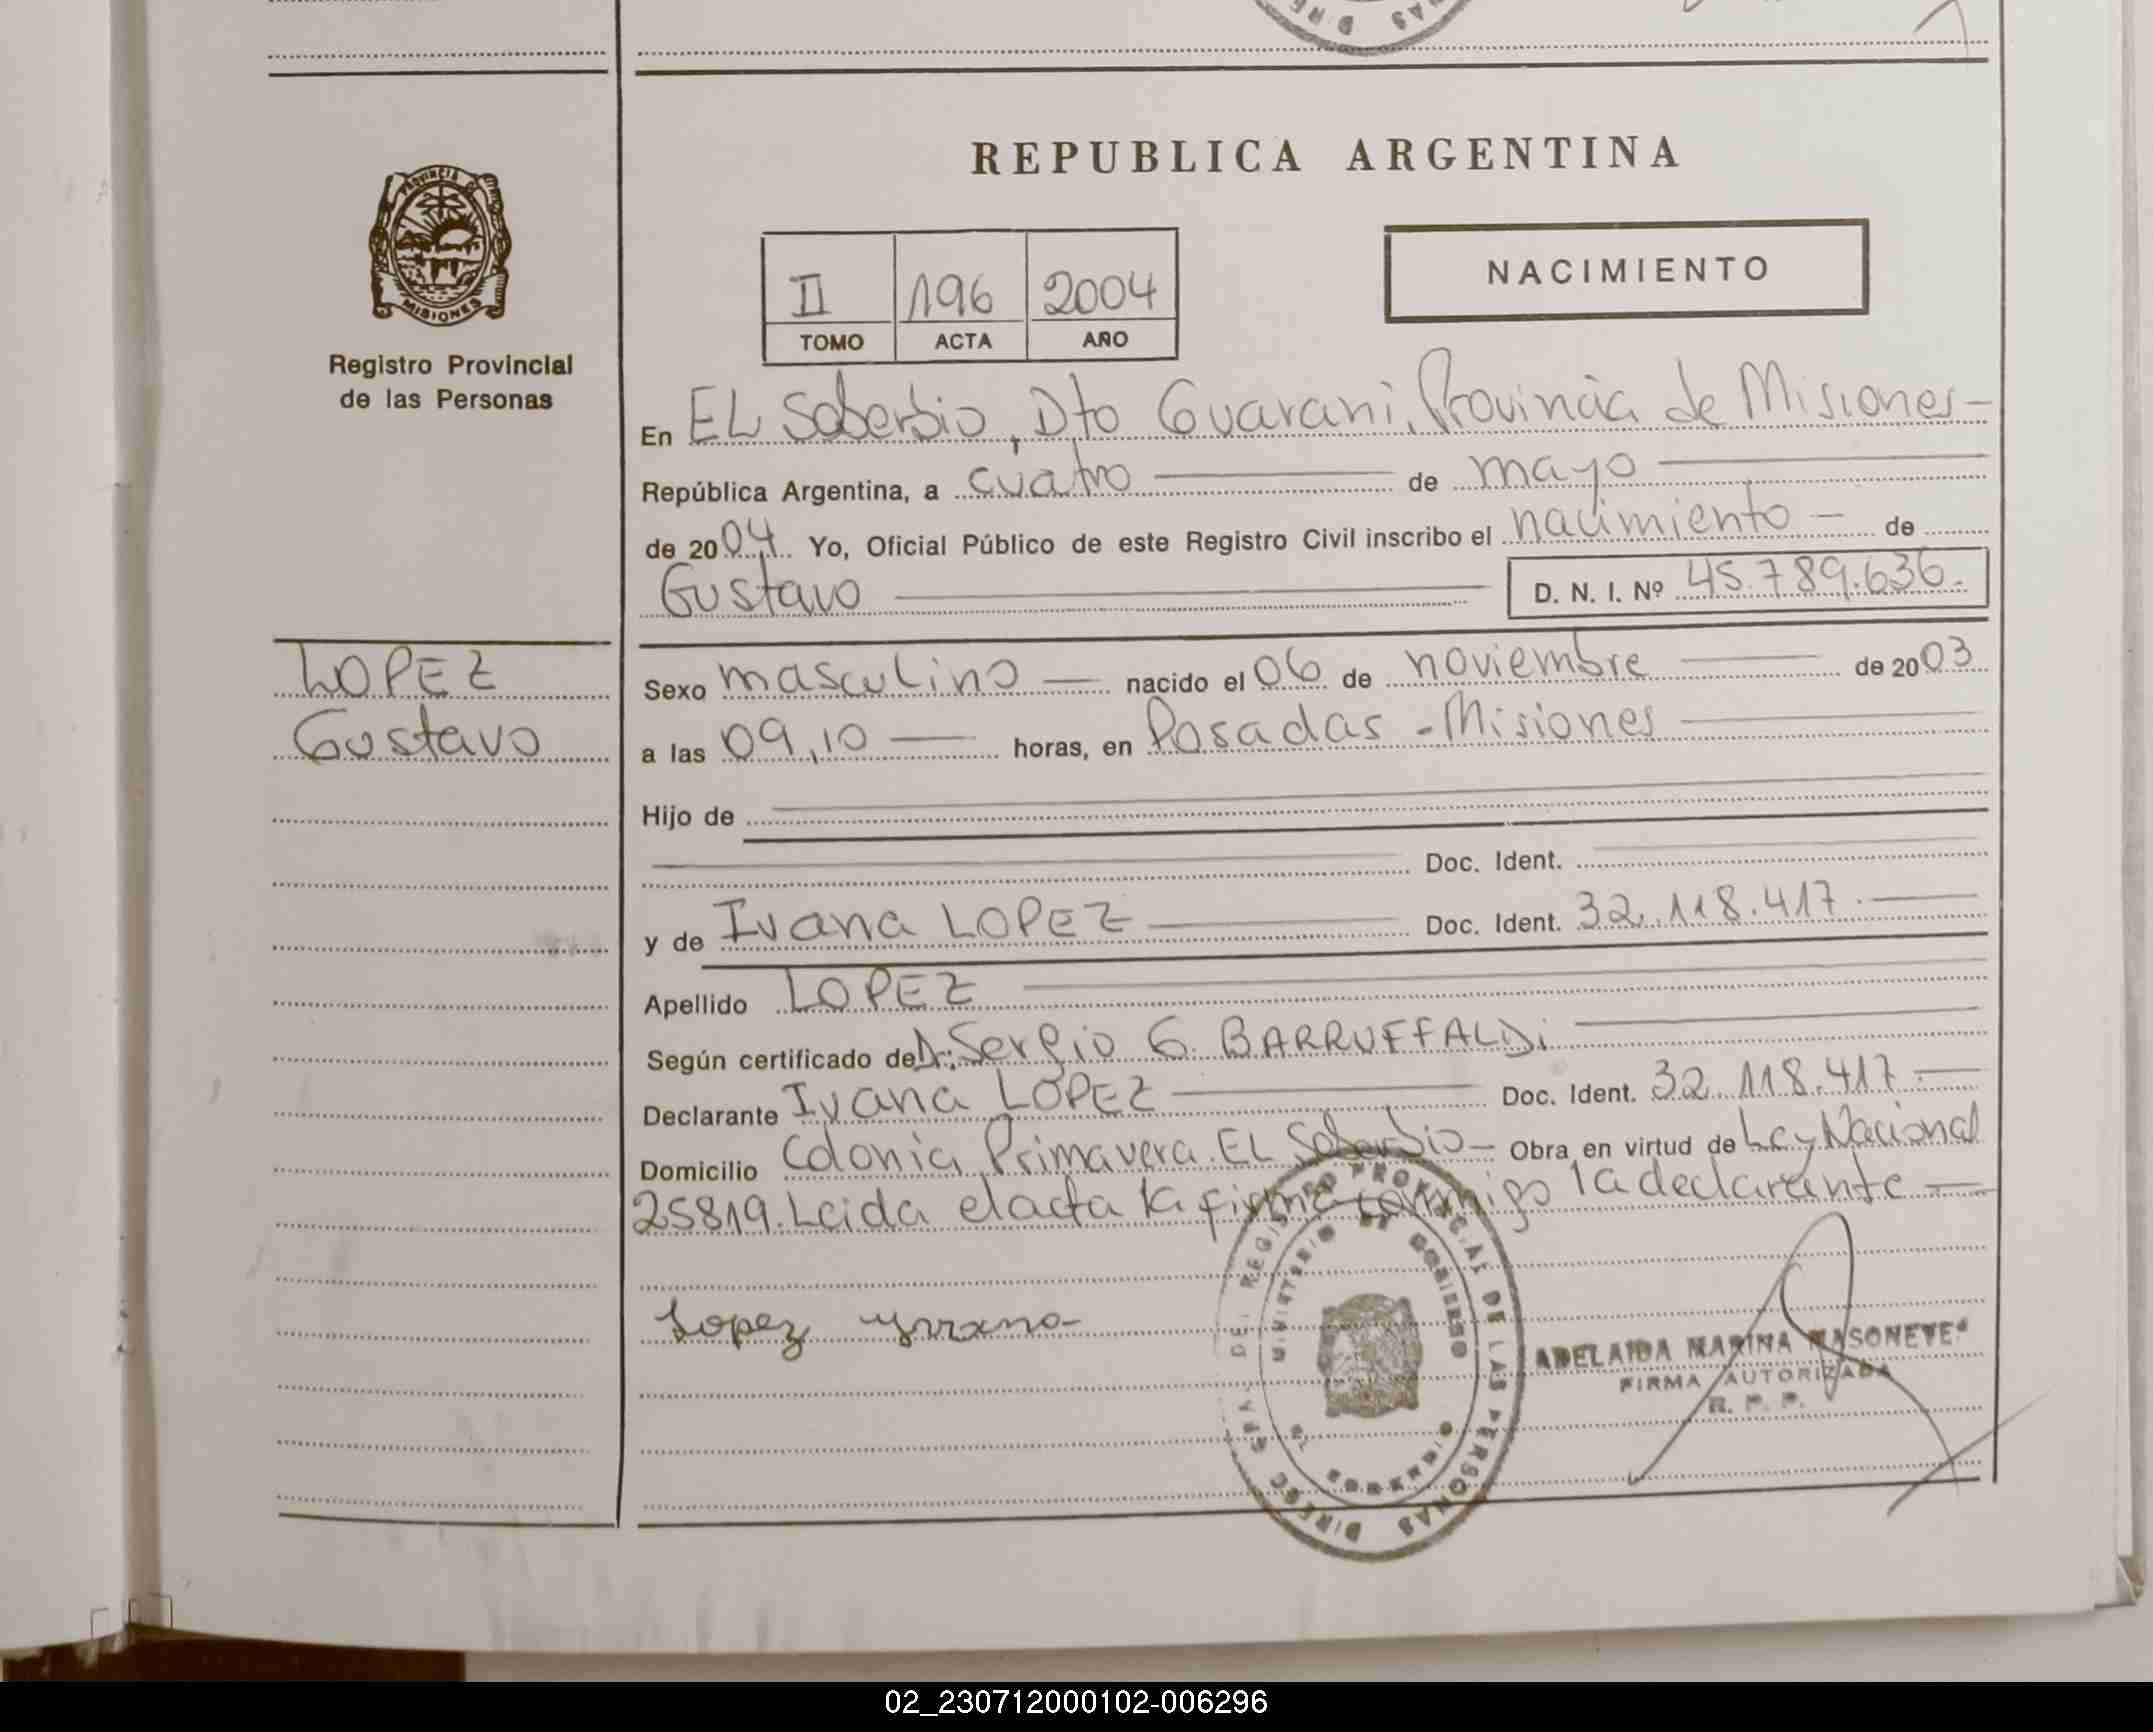 REPUBLICA ARGENTINA
PROVINCIA DE
MISIONES
Registro Provincial
de las Personas
II 196 2004
TOMO ACTA AÑO
NACIMIENTO
En EL Soberbio, Dto Guarani, Provincia de Misiones-
República Argentina, a cuatro de mayo
de 2004. Yo, Oficial Público de este Registro Civil inscribo el nacimiento - de
Gustavo D. N. I. Nº 45.789.636.
LOPEZ
Gustavo
Sexo masculino nacido el 06 de noviembre de 2003
a las 09,10 horas, en Posadas - Misiones
Hijo de
Doc. Ident.
y de Ivana LOPEZ Doc. Ident. 32.118.417.
Apellido LOPEZ
Según certificado de Dr: Sergio G. BARRUFFALDi
Declarante Ivana LOPEZ Doc. Ident. 32.118.417
Domicilio Colonia Primavera. EL Soberbio- Obra en virtud de Ley Nacional
25819. Leida el acta la firma conmigo la declarante
Lopez
REGISTRO PROVINCIAL DE LAS PERSONAS
MINISTERIO DE GOBIERNO
ADELAIDA MARINA
FIRMA AUTORIZADA
R. P. P.
02_230712000102-006296